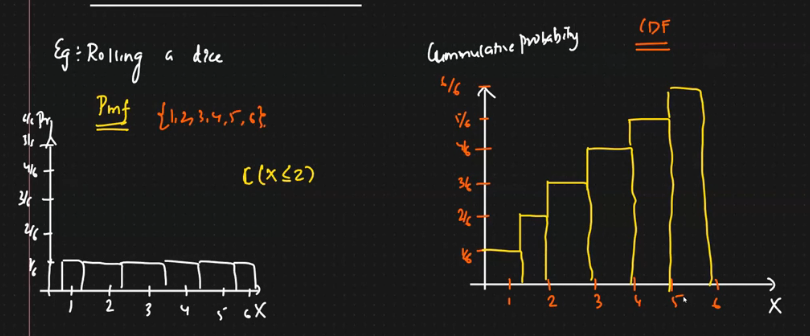 Eg: Rolling a dice
Pmf {1,2,3,4,5,6}
Pr
5/6
4/6
3/6
2/6
1/6
1 2 3 4 5 6 X
C(X≤2)
Cummulative probability CDF
6/6
5/6
4/6
3/6
2/6
1/6
1 2 3 4 5 6 X